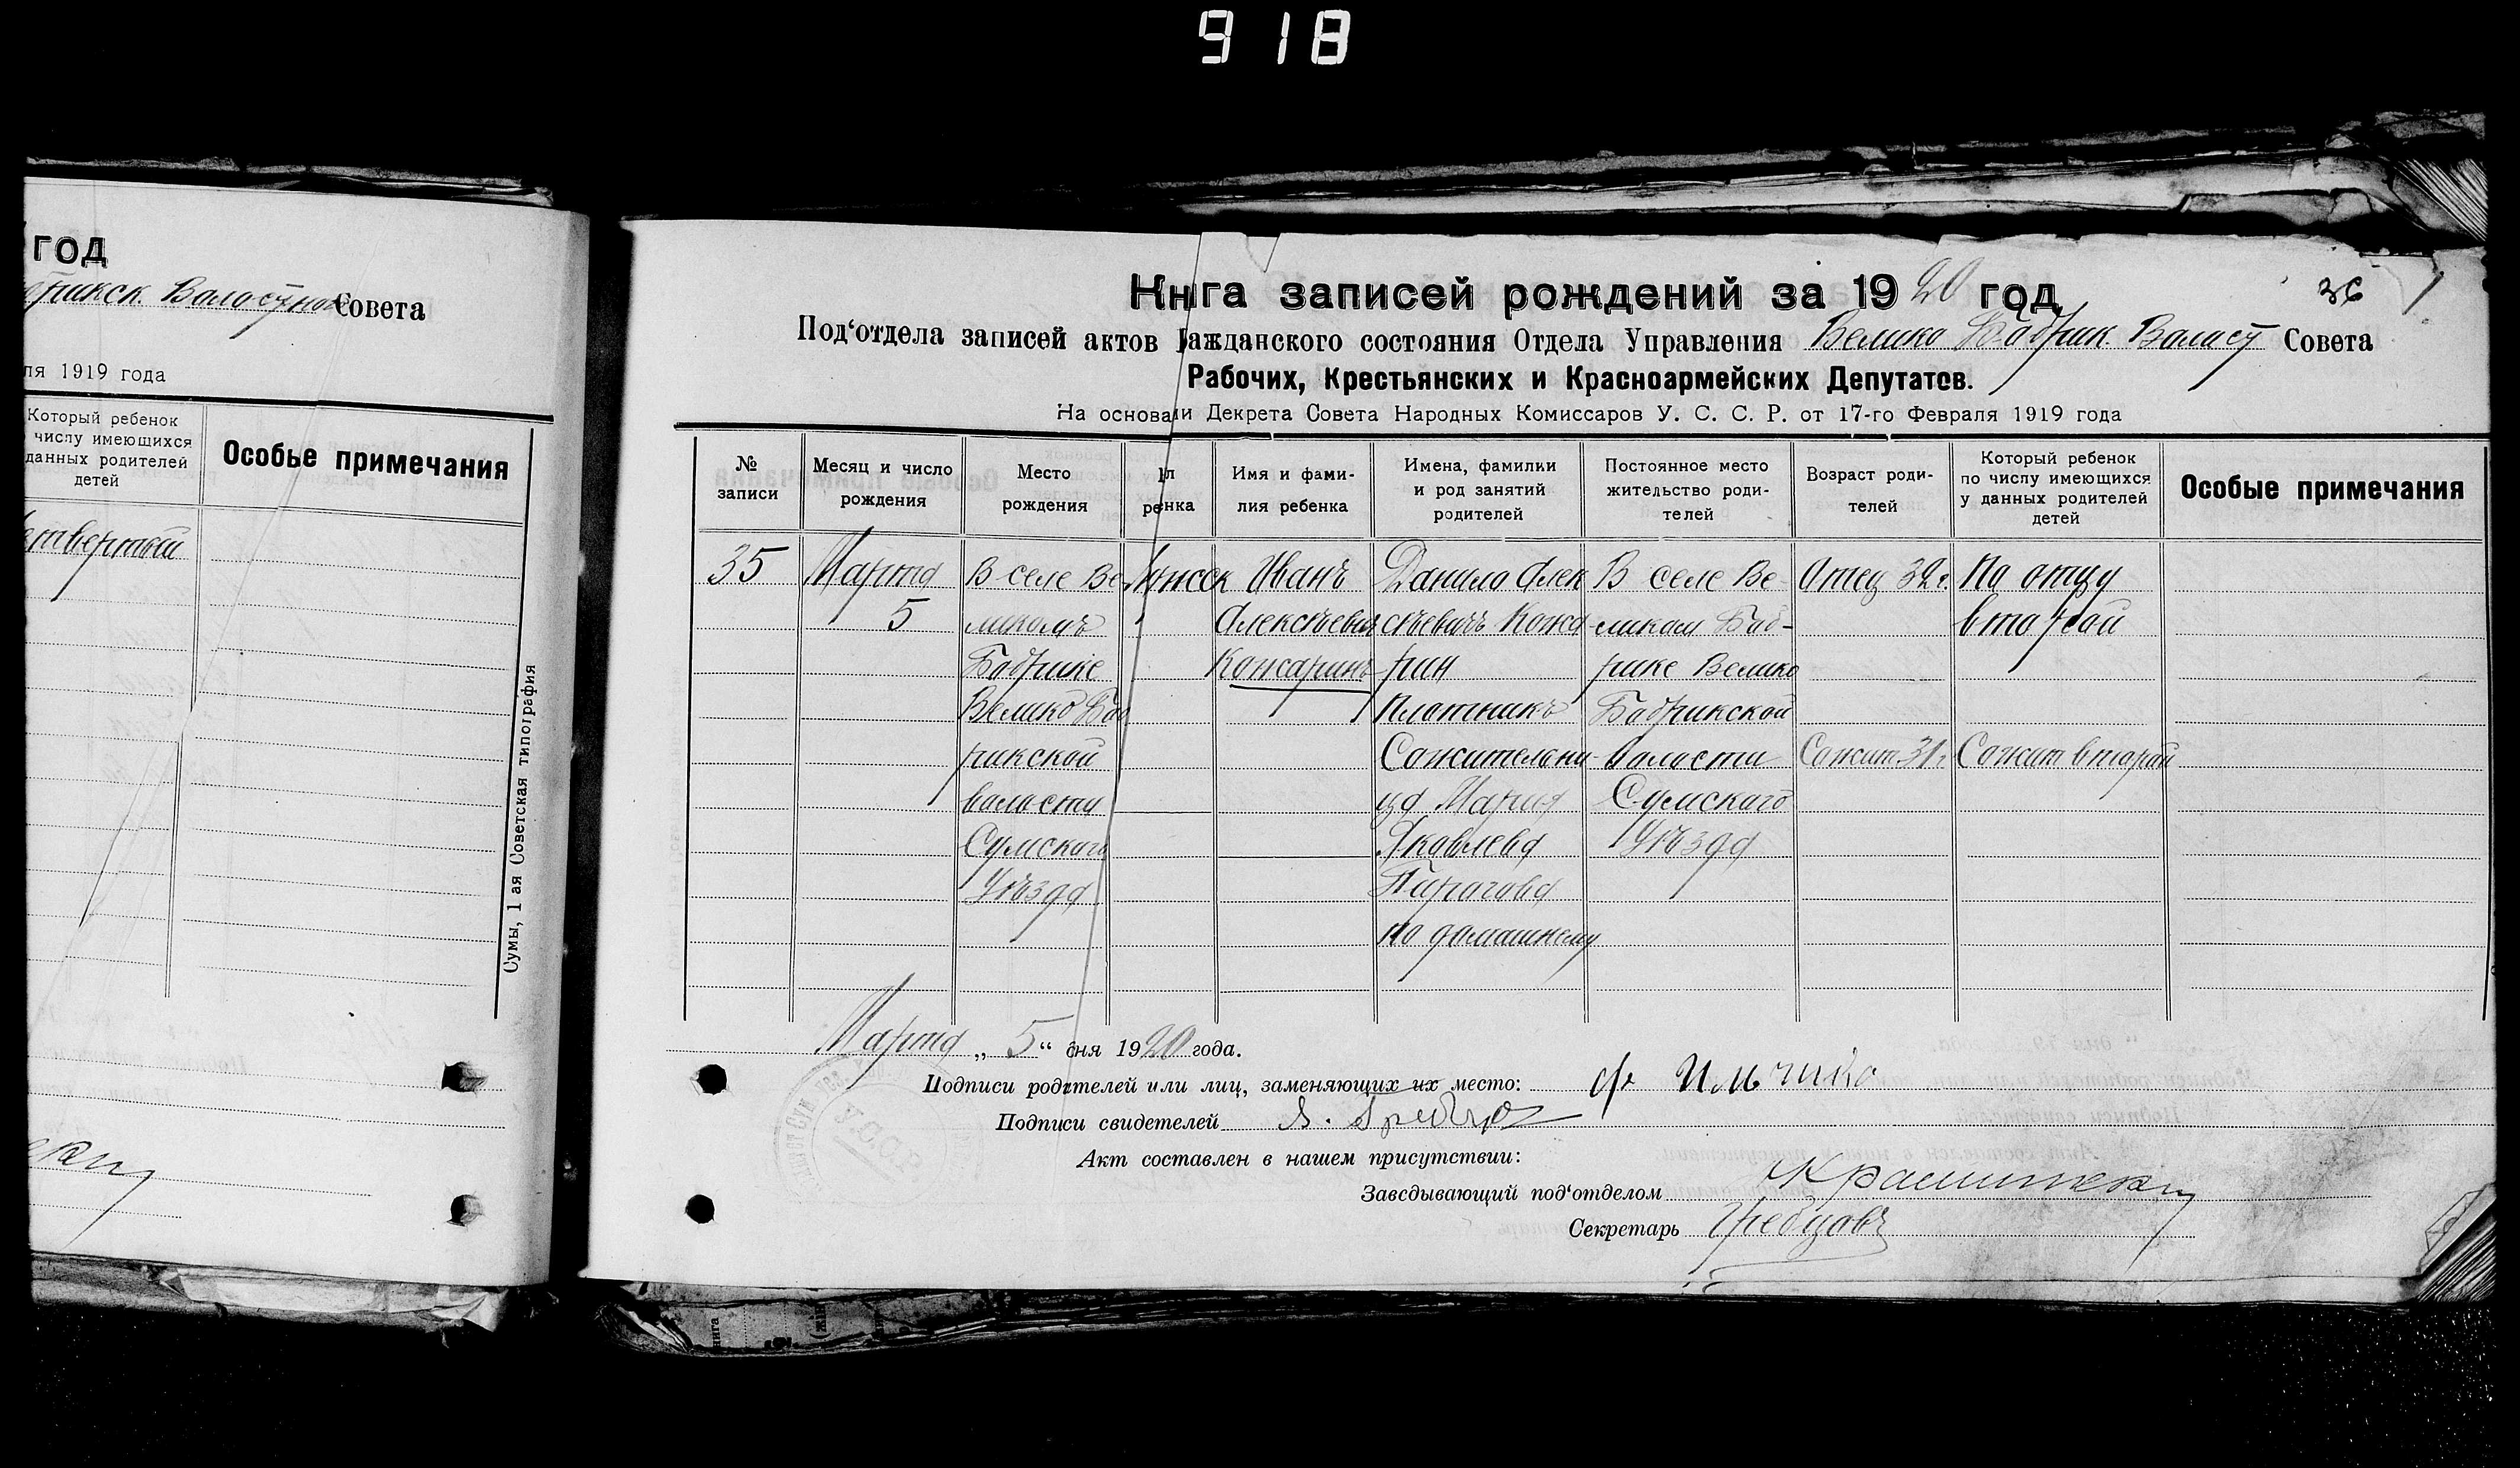 918
год
Волостного Совета
ля 1919 года
Который ребенок
числу имеющихся
данных родителей
детей
Особые примечания
етвертый
Сумы, 1 ая Советская типография
36
Книга записей рождений за 1920 год
Под‘отдела записей актов ажданского состояния Отдела Управления Велико Бобрик. Волост Совета
Рабочих, Крестьянских и Красноармейских Депутатов.
На основаи Декрета Совета Народных Комиссаров У. С. С. Р. от 17-го Февраля 1919 года
№
записи
Месяц и число
рождения
Место
рождения
л
ренка
Имя и фами-
лия ребенка
Имена, фамилки
и род занятий
родителей
Постоянное место
жительство роди-
телей
Возраст роди-
телей
Который ребенок
по числу имеющихся
у данных родителей
детей
Особые примечания
35
Марта
5
В селе Ве
ликомъ
Бобрике
Велико Боб
рикской
волости
Сумского
Уѣзда
Мжсск
Иванъ
Алексѣевич
Кожаринъ
Данило Алек
сѣевичъ Кожа
рин
Плотникъ
Сожительни
ца Мария
Яковлева
Пирогова
по домашнему
В селе Ве-
ликом Боб-
рике Велико
Бобрикской
Волости
Сумскаго
Уѣзда
Отец 32 г.
Сожит. 31 г.
По отцу
второй
Сожит второй
Марта „ 5 “ дня 1920 года.
Подписи родителей или лиц, заменяющих их место:
Подписи свидетелей
Акт составлен в нашем присутствии:
Завсдывающий под‘отделом
Секретарь Гребцовъ